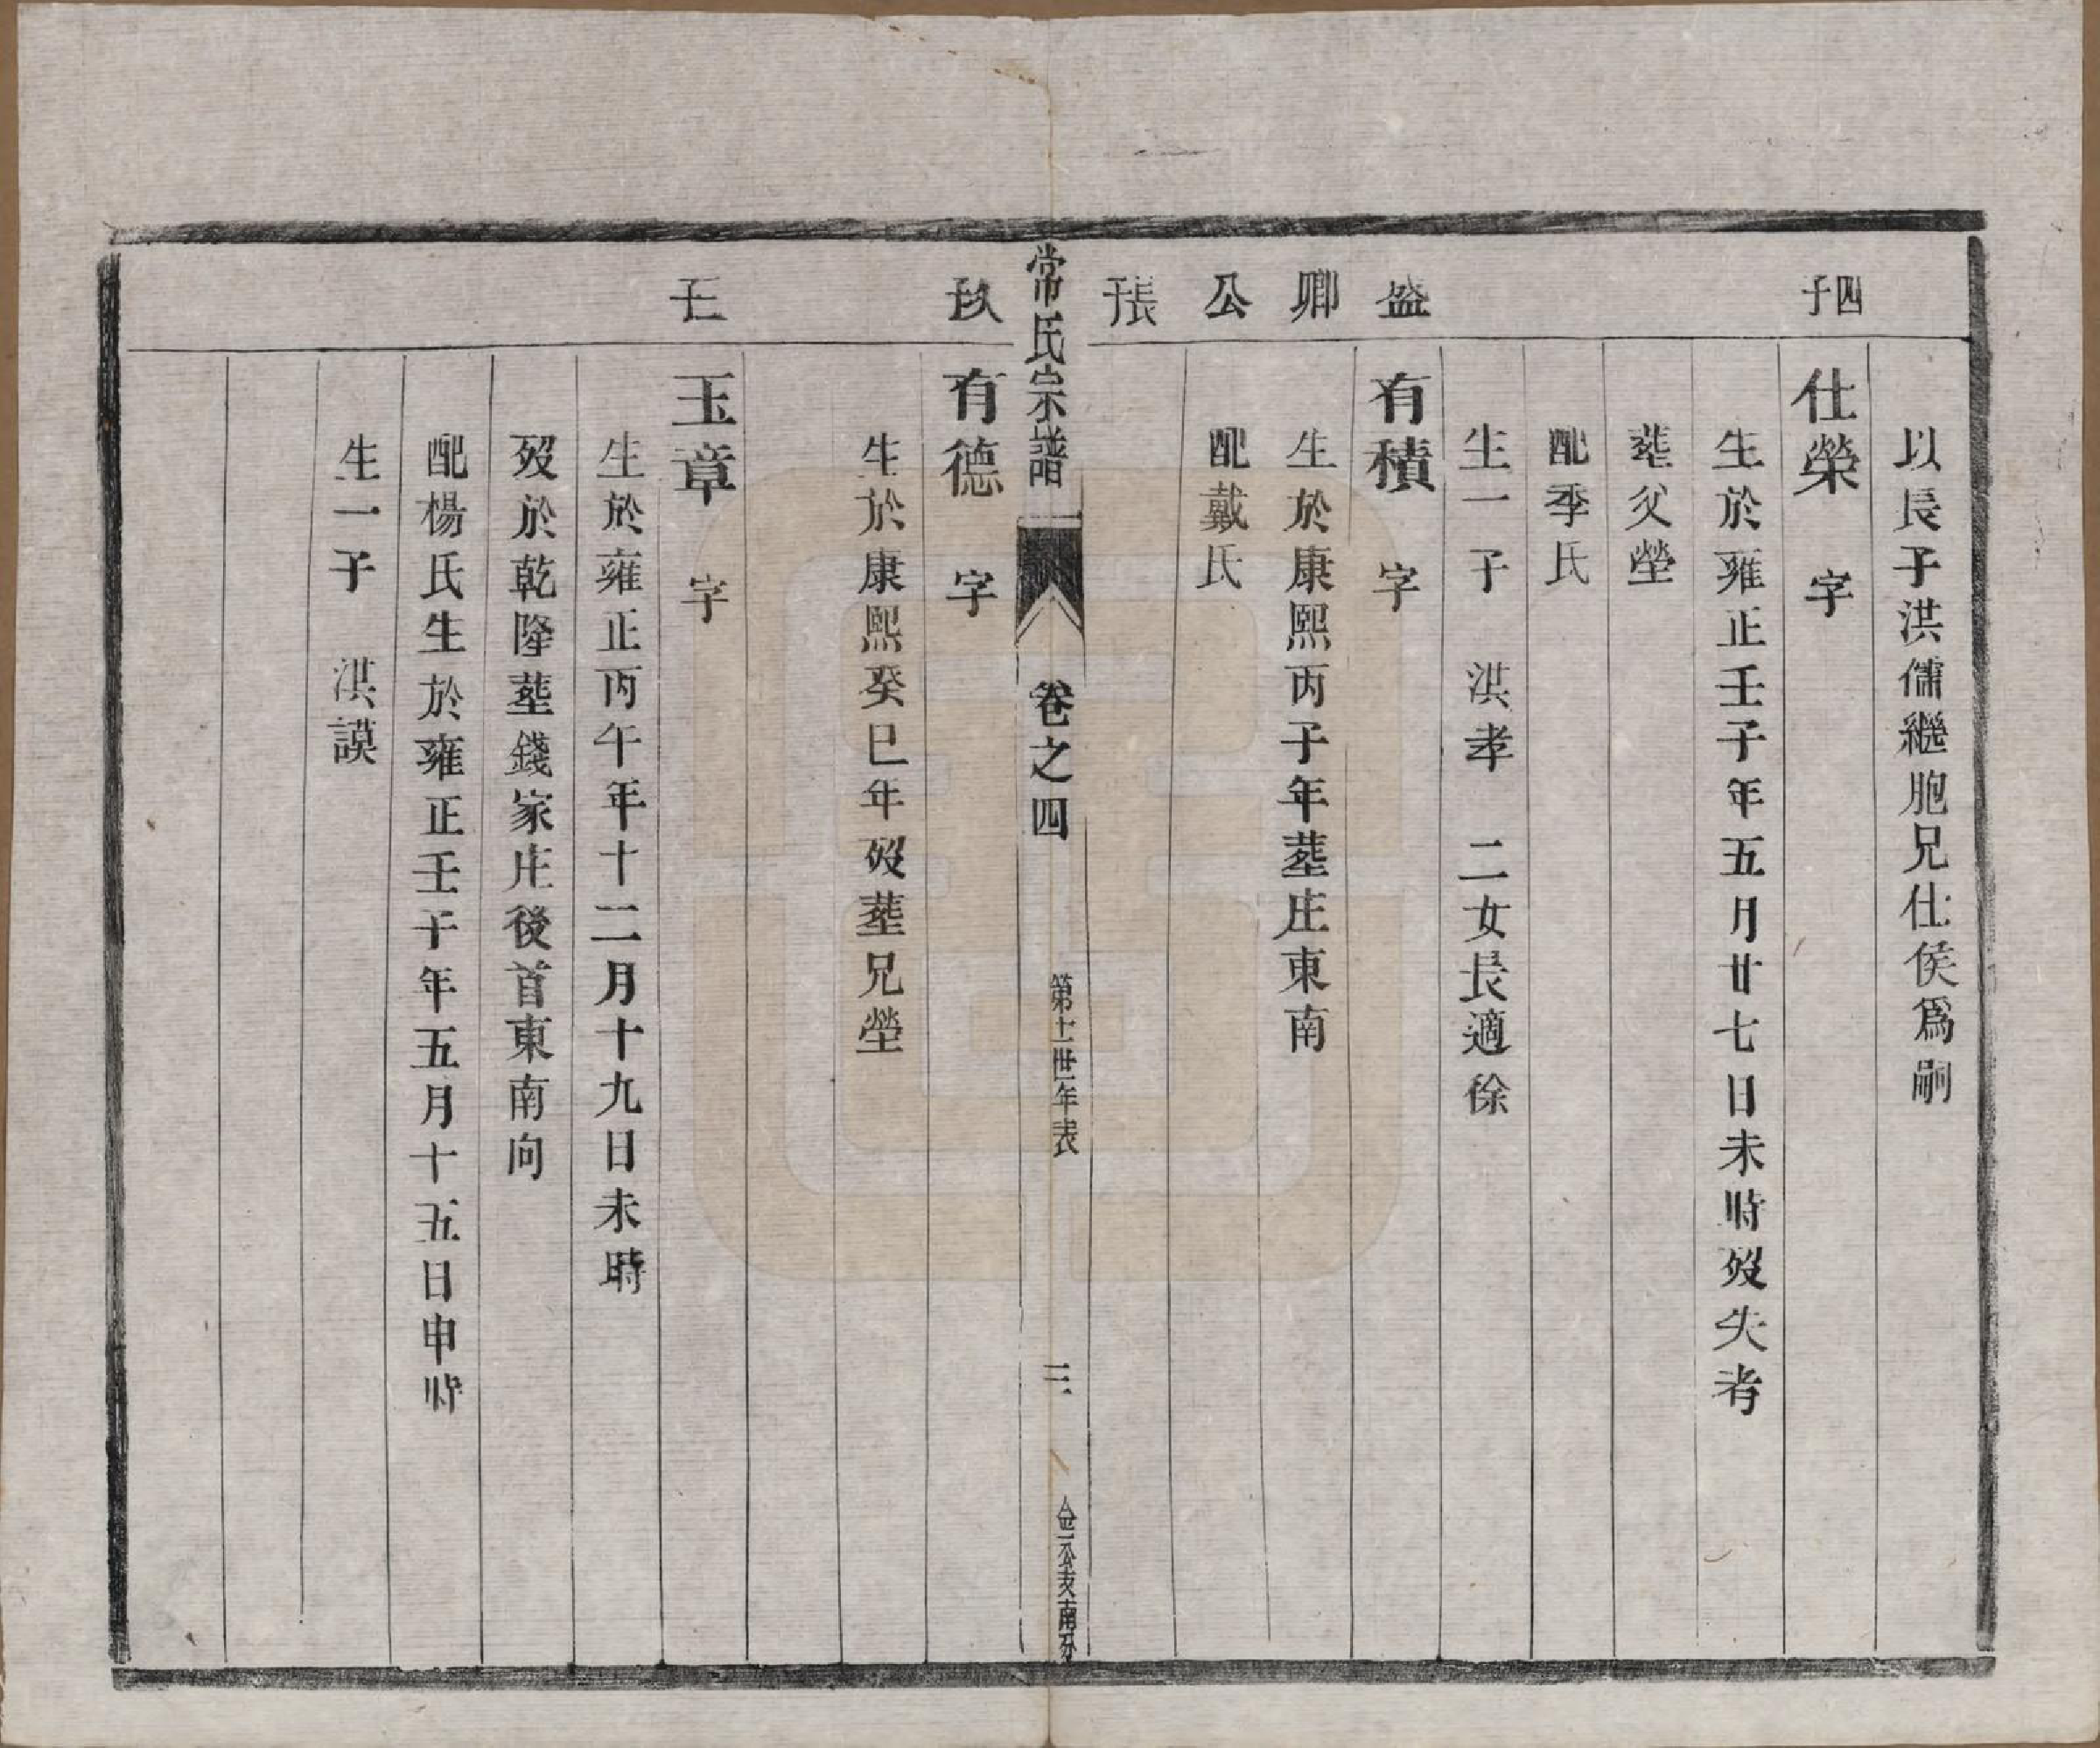 以長子洪儒繼胞兄仕侯爲嗣
四子
仕榮　字
生於雍正壬子年五月廿七日未時歿失考
葬父塋
配季氏
生一子　洪孝　二女長適徐
盛卿公長子
有積　字
生於康熙丙子年葬庄東南
配戴氏
常氏宗譜　卷之四　第十一世年表　三　金一公支南分
次子
有德　字
生於康熙癸巳年歿葬兄塋
三子
玉章　字
生於雍正丙午年十二月十九日未時
歿於乾隆葬錢家庄後首東南向
配楊氏生於雍正壬子年五月十五日申時
生一子　洪謨